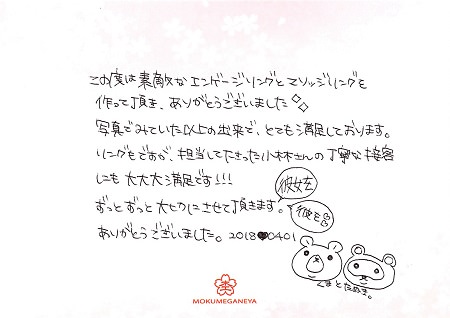 この度は素敵なエンゲージリングとマリッジリングを
作って頂き、ありがとうございました
写真でみていた以上の出来で、とても満足しております。
リングもですが、担当してださった小林さんの丁寧な接客
にも大大大満足です!!!
彼女を
ずっとずっと大切にさせて頂きます。
彼を
ありがとうございました。2018♥0401
くまとたぬき。
MOKUMEGANEYA